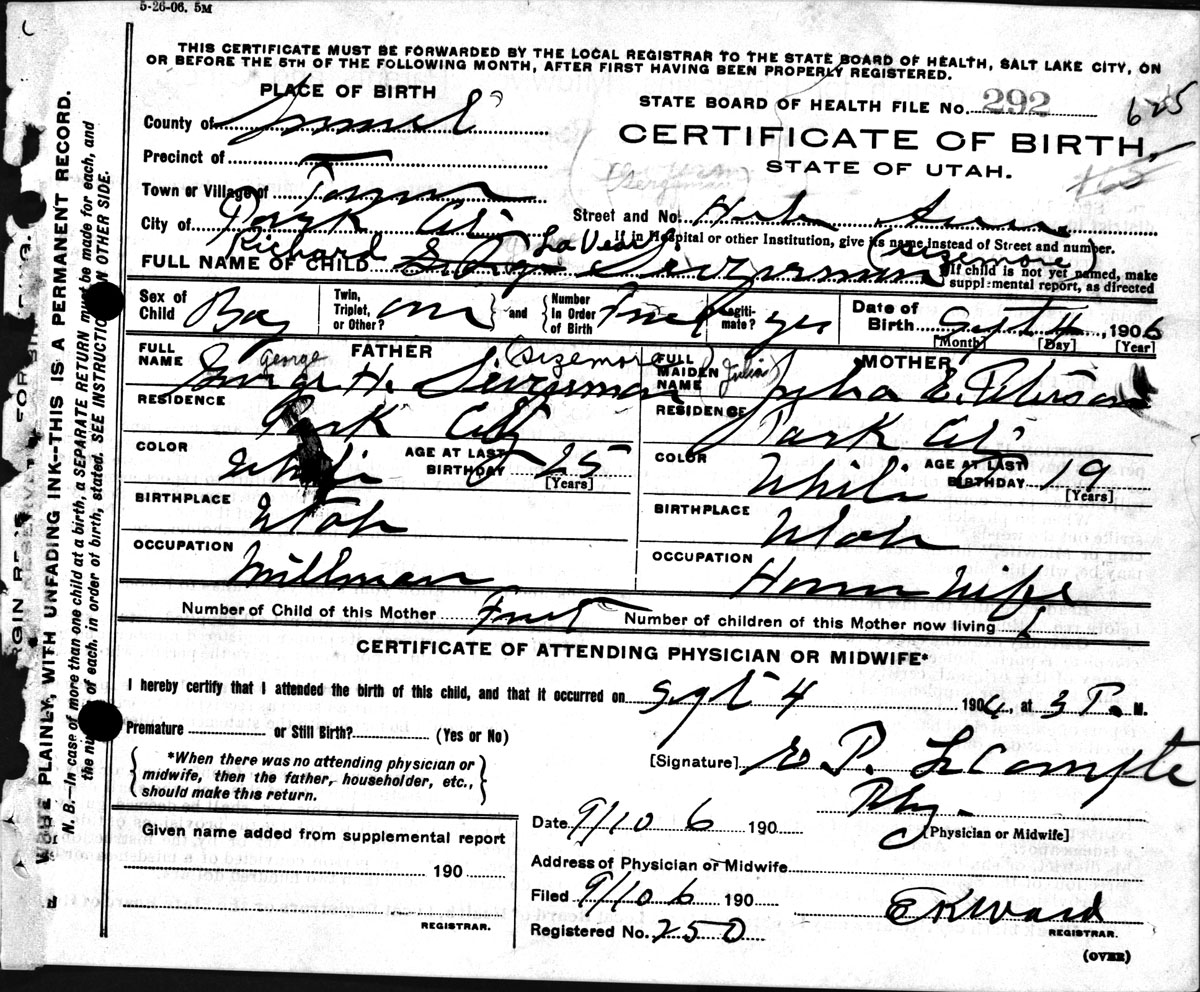 5-26-06. 5M
THIS CERTIFICATE MUST BE FORWARDED BY THE LOCAL REGISTRAR TO THE STATE BOARD OF HEALTH, SALT LAKE CITY, ON
OR BEFORE THE 5TH OF THE FOLLOWING MONTH, AFTER FIRST HAVING BEEN PROPERLY REGISTERED.
PLACE OF BIRTH
STATE BOARD OF HEALTH FILE No. 292 625
County of Summit
CERTIFICATE OF BIRTH,
STATE OF UTAH.
Precinct of
Town or Village of
City of Park City Street and No.
If in Hospital or other Institution, give its name instead of Street and number.
Richard LaVea (Sizemore)
FULL NAME OF CHILD
If child is not yet named, make supplemental report, as directed
Sex of Child Boy Twin, Triplet, or Other? one and Number In Order of Birth First Legitimate? yes Date of Birth Sept 4, 1906
[Month] [Day] [Year]
FATHER
FULL NAME George H. (Sizemore)
George
RESIDENCE Park City
COLOR White AGE AT LAST BIRTHDAY 25 [Years]
BIRTHPLACE Utah
OCCUPATION Millman
MOTHER
FULL MAIDEN NAME (Julia) Julia E. Peterson
RESIDENCE Park City
COLOR White AGE AT LAST BIRTHDAY 19 [Years]
BIRTHPLACE Utah
OCCUPATION House Wife
Number of Child of this Mother First Number of children of this Mother now living 1
CERTIFICATE OF ATTENDING PHYSICIAN OR MIDWIFE*
I hereby certify that I attended the birth of this child, and that it occurred on Sept 4 1906, at 3 P. M.
Premature or Still Birth? (Yes or No)
*When there was no attending physician or
midwife, then the father, householder, etc.,
should make this return.
[Signature] E P. LeCompte
Phy.
[Physician or Midwife]
Date 9/10 6 190
Given name added from supplemental report
190
REGISTRAR.
Address of Physician or Midwife
Filed 9/10 6 190 E K Ward
REGISTRAR.
Registered No. 250
(OVER)
WRITE PLAINLY, WITH UNFADING INK--THIS IS A PERMANENT RECORD.
N. B.--In case of more than one child at a birth, a SEPARATE RETURN must be made for each, and
the number of each, in order of birth, stated. SEE INSTRUCTIONS ON OTHER SIDE.